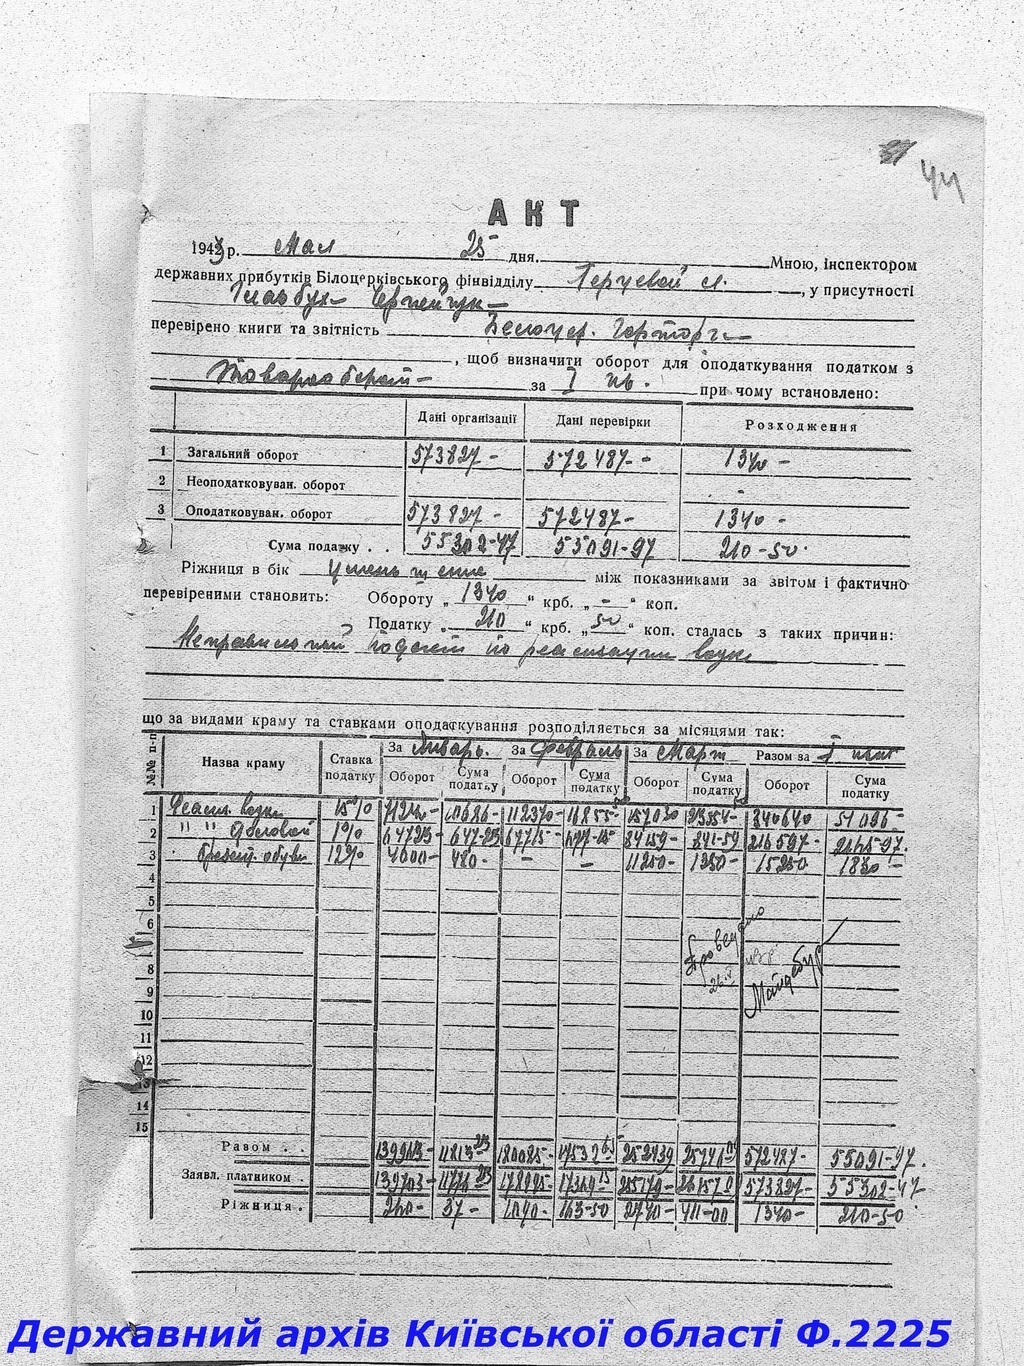 44
АКТ
194 р. Мая 25 дня. Мною, інспектором
державних прибутків Білоцерківського фінвідділу , у присутності
перевірено книги та звітність Белоцер. Горторга
, щоб визначити оборот для оподаткування податком з
за I кв. при чому встановлено:
Дані організації Дані перевірки Розходження
1 Загальний оборот 573827- 572487- 1340-
2 Неоподатковуван. оборот -
3 Оподатковуван. оборот 573827- 572487- 1340-
Сума податку . . 55302-47 55091-97 210-50
Ріжниця в бік уменьшение між показниками за звітом і фактично
перевіреними становить: Обороту „ 1340 “ крб. „ - “ коп.
Податку „ 210 “ крб. „ 50 “ коп. сталась з таких причин:
Неправильный
що за видами краму та ставками оподаткування розподіляється за місяцями так:
№№ п-п Назва краму Ставка податку За Январь За Февраль За Март Разом за I кварт
Оборот Сума податку Оборот Сума податку Оборот Сума податку Оборот Сума податку
1 15% 112370- 16855- 157030 23554- 340640 51096-
2 " " 1% 64723- 647-23 67715- 677-15 84159- 841-59 216597- 2165-97
3 обуви 12% 4000- 480- - - 11250- 1350- 15250- 1830-
4
5
6
8
9
10
11
12
13
14
15
Проведено
26.V
Разом . . 139963- 11813 23 180085- 17532 65 252439 572487- 55091-97
Заявл. платником . 139703- 11776 23 178995- 17369 15 255179- 573827- 55302-47
Ріжниця . 260- 37- 1090- 163-50 2740- 411-00 1340- 210-50
Державний архів Київської області Ф.2225